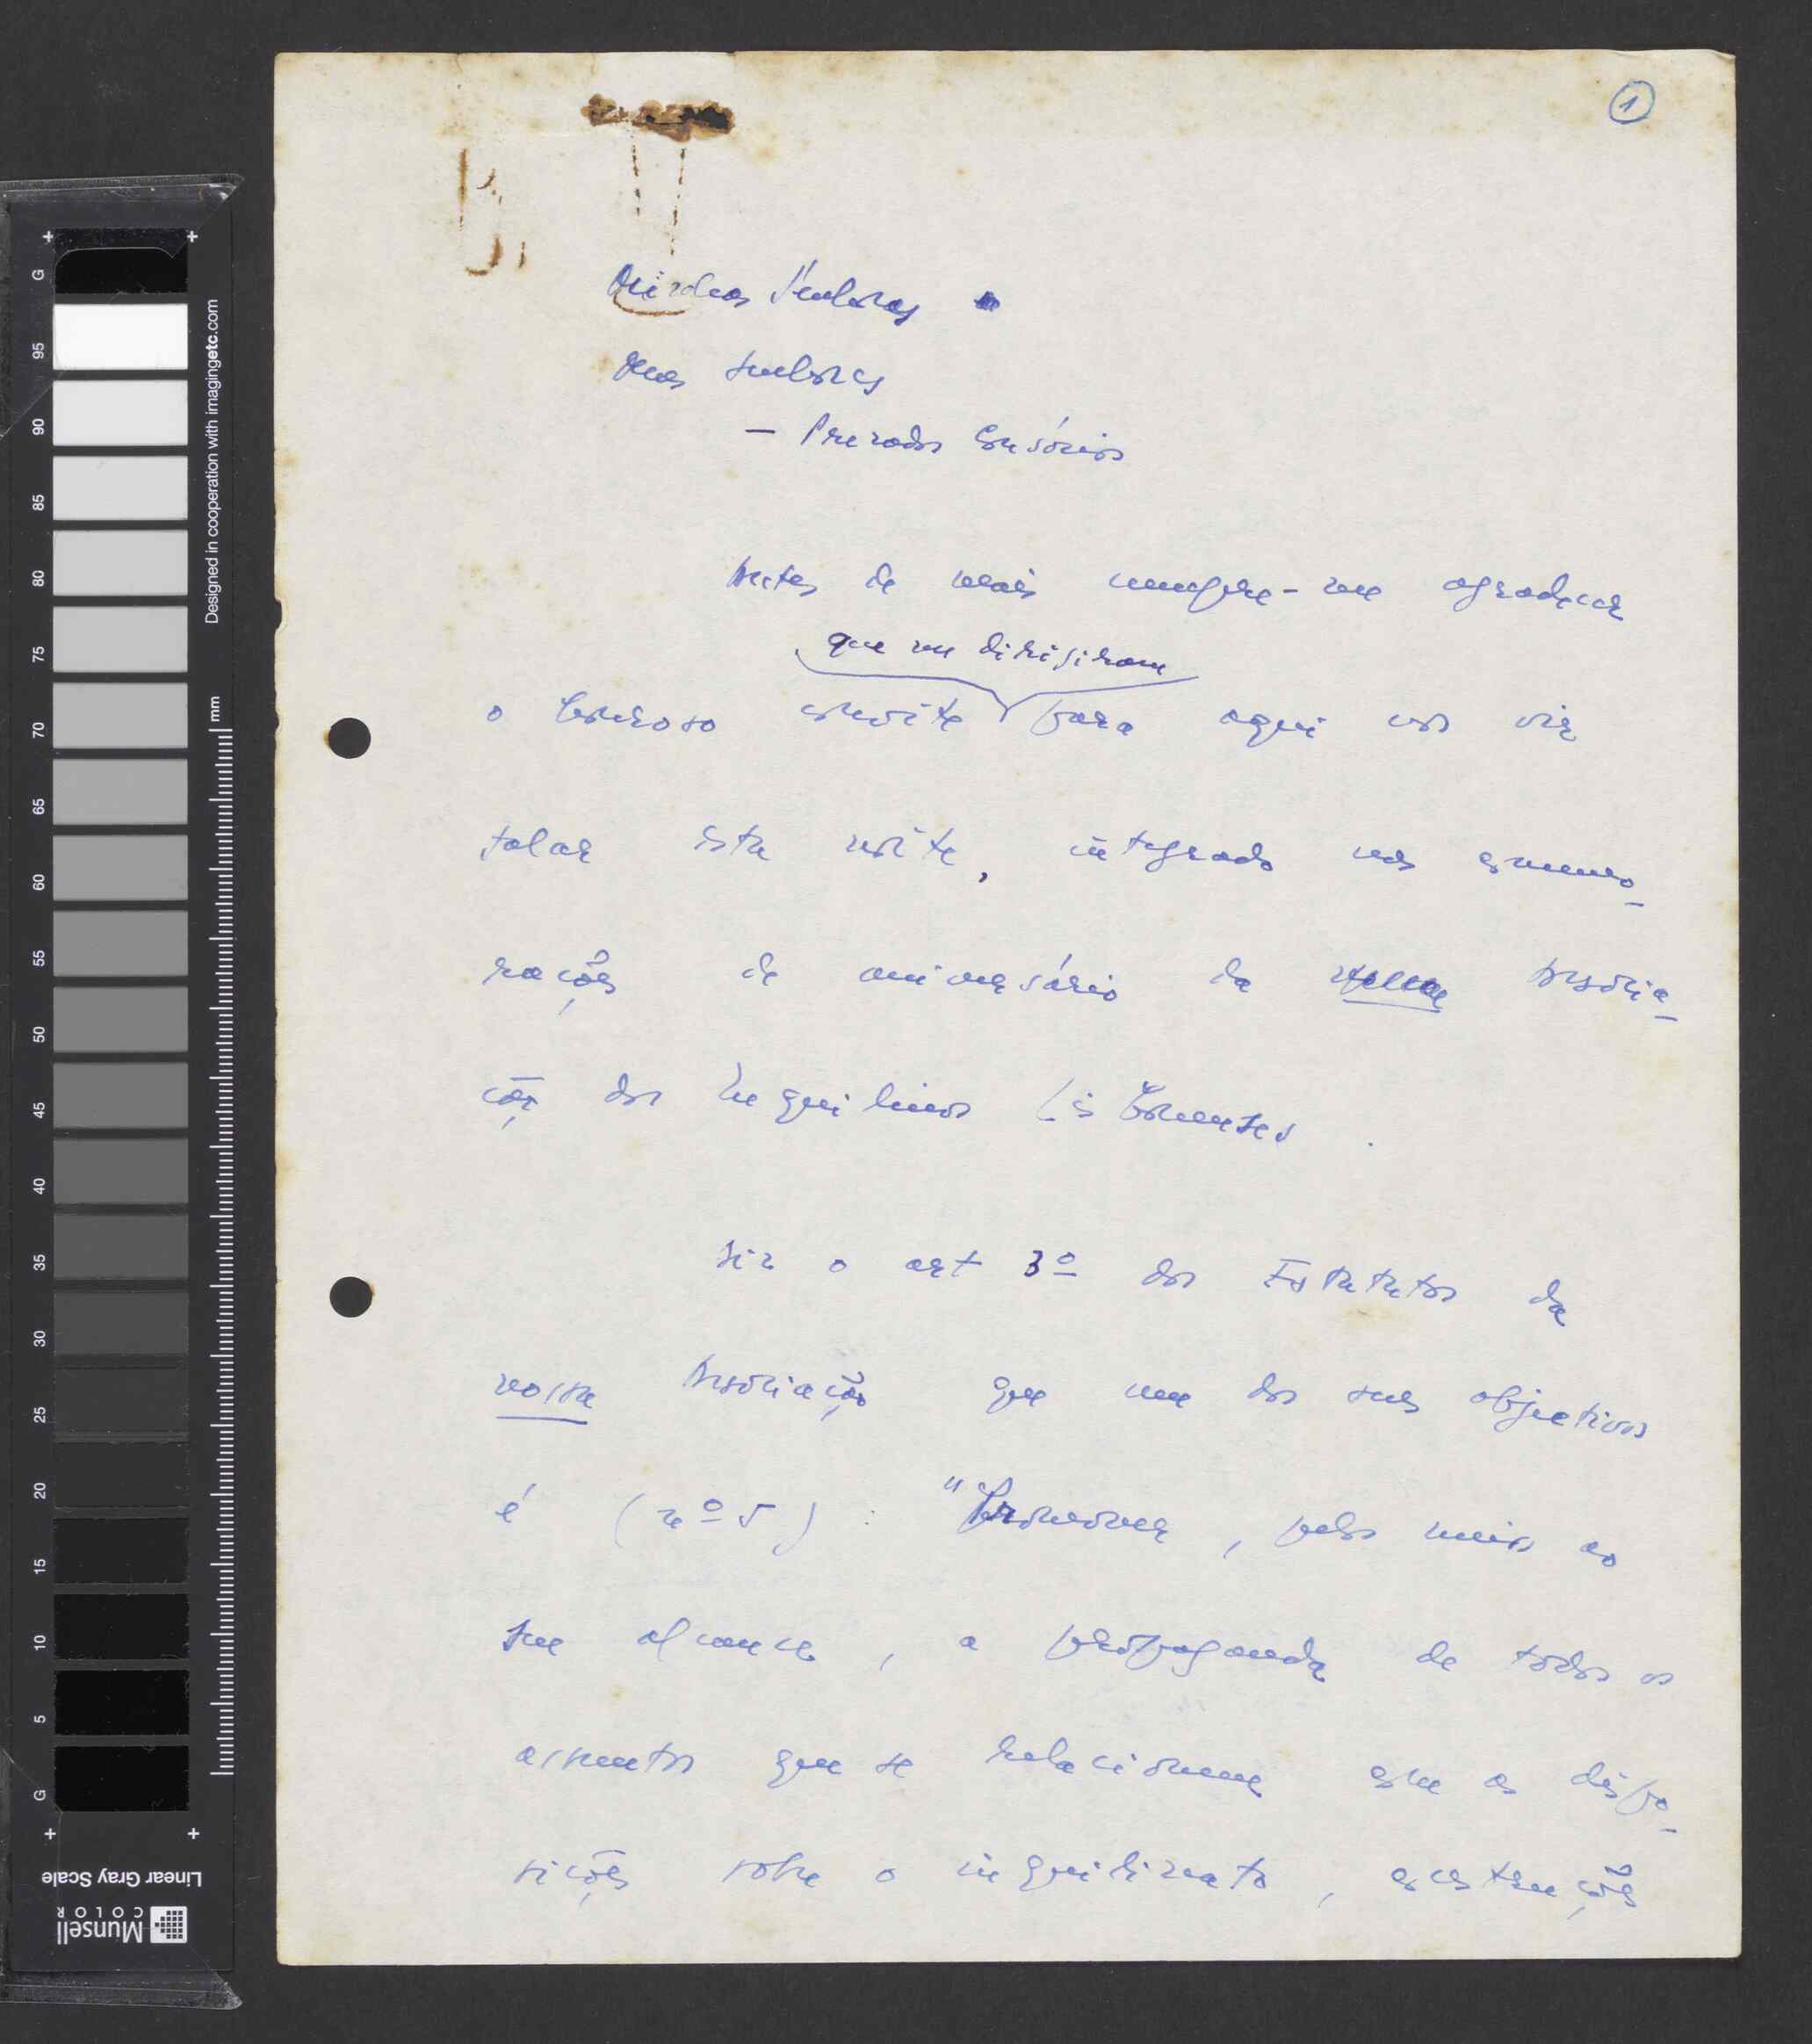 1
Minhas Senhoras
Meus Senhores
— Prezados Consócios
Antes de mais cumpre-me agradecer
que me dirigiram
o honroso convite para aqui vos vir
falar esta noite, integrado nas comemo-
rações de aniversário da Associa-
ção dos Inquilinos Lisbonenses.
Diz o art 3º dos Estatutos da
nossa Associação que um dos seus objectivos
é (nº 5) : "Promover, pelos meios ao
seu alcance, a propaganda de todos os
assuntos que se relacionem com as dispo-
sições sobre o inquilinato, construções
G
95
90
85
80
75
70
65
60
55
50
45
40
35
30
25
20
15
10
5
G
mm
Designed in cooperation with imagingetc.com
Linear Gray Scale
Munsell
COLOR